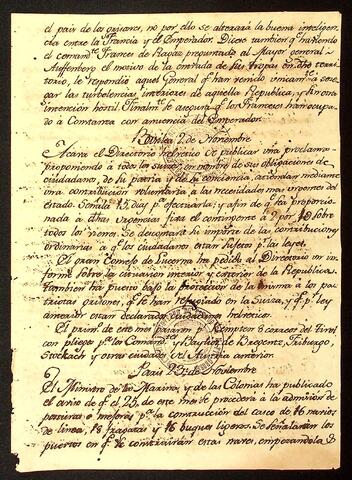 el pais de los grisones, no por ello se alterará la buena inteligen-
cia entre la Francia y el Emperador. Dicese tambien q.e habiendo
el comand.te Frances de Ragaz preguntado al Mayor general
Auffemberg el motivo de la entrada de sus tropas en dho terri-
torio, le respondió aquel General q.e han venido unicam.te a sose-
gar las turbolencias interiores de aquella Republica, y sin otra
intencion hostil. Finalm.te se asegura q.e los Franceses han ocupa-
do a Constanza con anuencia del Emperador.
Basilea 2 de Noviembre
Acava el Directorio helvetico de publicar una proclama
proponiendo a todos los suizos en nombre de sus obligaciones de
ciudadano, de la patria y de la conciencia, atiendan mediante
una contribucion voluntaria a las necesidades mas urgentes del
estado. Señala 15 dias p.a efectuarla; y afin de q.e sea proporcio-
nada a dhas urgencias fixa el contingente á 2 por 100 sobre
todos los vienes. Se descontará su importe de las contribuciones
ordinarias a q.e los ciudadanos estan sujetos p.r las leyes.
El gran Consejo de Lucerna ha pedido al Directorio un in-
forme sobre la situacion interior y exterior de la Republica.
Tambien ha puesto baxo la proteccion de la misma a los pa-
triotas grisones, q.e se han refugiado en la Suiza, y q.e p.r ley
anterior estan declarados ciudadanos helveticos.
El prim.o de este mes pasaron p.r Kempten 8 correos del Tirol
con pliegos p.a los Comand.tes y Bayles de Bregentz, Friburgo,
Stockach y otras ciudades del Austria anterior.
Paris 23 de Noviembre
El Ministro de la Marina, y de las Colonias ha publicado
el aviso de q.e el 25 de este mes se procederá a la admision de
posturas o mejoras p.a la construccion del casco de 16 navios
de linea, 18 fragatas y 16 buques ligeros. Se señalarán los
puertos en q.e se construirán estas naves, empezandola